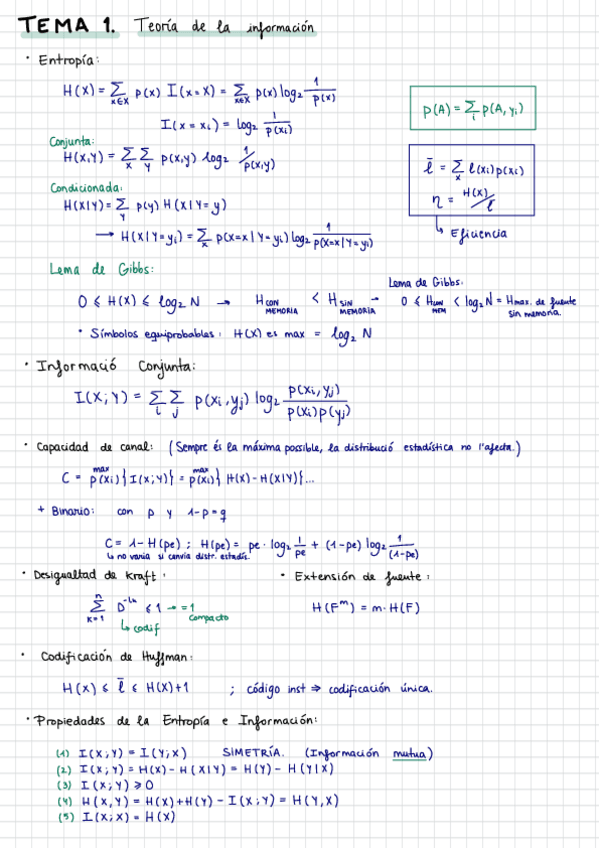 TEMA 1. Teoría de la información
· Entropía:
H(X) = Σ_{x∈X} p(x) I(x=X) = Σ_{x∈X} p(x) log₂ 1/p(x)
I(x=xᵢ) = log₂ 1/p(xᵢ)
p(A) = Σᵢ p(A, yᵢ)
Conjunta:
H(X,Y) = Σₓ Σ_y p(x,y) log₂ 1/p(x,y)
l̄ = Σₓ l(xᵢ)p(xᵢ)
η = H(X)/l̄
↳ Eficiencia
Condicionada:
H(X|Y) = Σ_y p(y) H(X|Y=y)
→ H(X|Y=yᵢ) = Σₓ p(X=x|Y=yᵢ) log₂ 1/p(X=x|Y=yᵢ)
Lema de Gibbs:
Lema de Gibbs:
0 ≤ H(X) ≤ log₂ N → H_{CON MEMORIA} < H_{SIN MEMORIA} → 0 ≤ H_{CON MEM} < log₂ N = Hmax. de fuente sin memoria.
· Símbolos equiprobables: H(X) es max = log₂ N
· Informació Conjunta:
I(X;Y) = Σᵢ Σⱼ p(xᵢ,yⱼ) log₂ p(xᵢ,yⱼ)/p(xᵢ)p(yⱼ)
· Capacidad de canal: (Sempre és la máxima possible, la distribució estadística no l'afecta.)
C = max p(xᵢ) { I(X;Y)} = max p(xᵢ) { H(X)-H(X|Y)}...
+ Binario: con p y 1-p=q
C = 1-H(pe) ; H(pe) = pe·log₂ 1/pe + (1-pe) log₂ 1/(1-pe)
↳ no varia si canvia distr. estadís.
· Desigualtad de Kraft:
· Extensión de fuente:
Σ_{k=1}^{n} D^{-lk} ≤ 1 → =1 compacto
H(F^m) = m·H(F)
↳ codif
· Codificación de Huffman:
H(X) ≤ l̄ ≤ H(X)+1 ; código inst ⇒ codificación única.
· Propiedades de la Entropía e Información:
(1) I(X;Y) = I(Y;X) SIMETRÍA. (Información mutua)
(2) I(X;Y) = H(X)-H(X|Y) = H(Y)-H(Y|X)
(3) I(X;Y) ≥ 0
(4) H(X,Y) = H(X)+H(Y)-I(X;Y) = H(Y,X)
(5) I(X;X) = H(X)